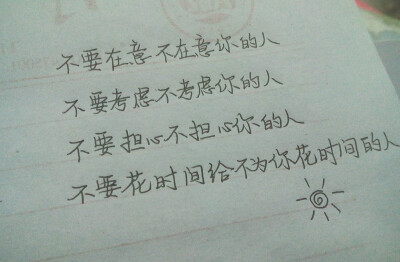 不要在意不在意你的人
不要考虑不考虑你的人
不要担心不担心你的人
不要花时间给不为你花时间的人